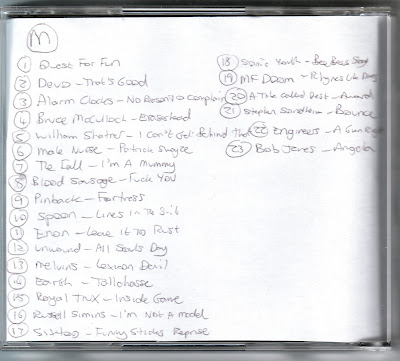 M
1 Quest For Fun
2 Devo - That's Good
3 Alarm Clocks - No Reason To Complain
4 Bruce McCulloch - Eraserhead
5 William Shatner - I Can't Get Behind That
6 Male Nurse - Patrick Swayze
7 The Fall - I'm A Mummy
8 Blood Sausage - Fuck You
9 Pinback - Fortress
10 Spoon - Lines In The Suit
11 Enon - Leave It To Rust
12 Unwound - All Souls Day
13 Melvins - Lexicon Devil
14 Earth - Tallahassee
15 Royal Trux - Inside Game
16 Russell Simins - I'm Not A Model
17 - Funny Sticks Reprise
18 Sonic Youth - Bee Bees Song
19 MF Doom - Rhymes Like Dimes
20 A Tribe Called Quest - Award
21 Stephen Sondheim - Bounce
22 Engineers - A Given Right
23 Bob James - Angela